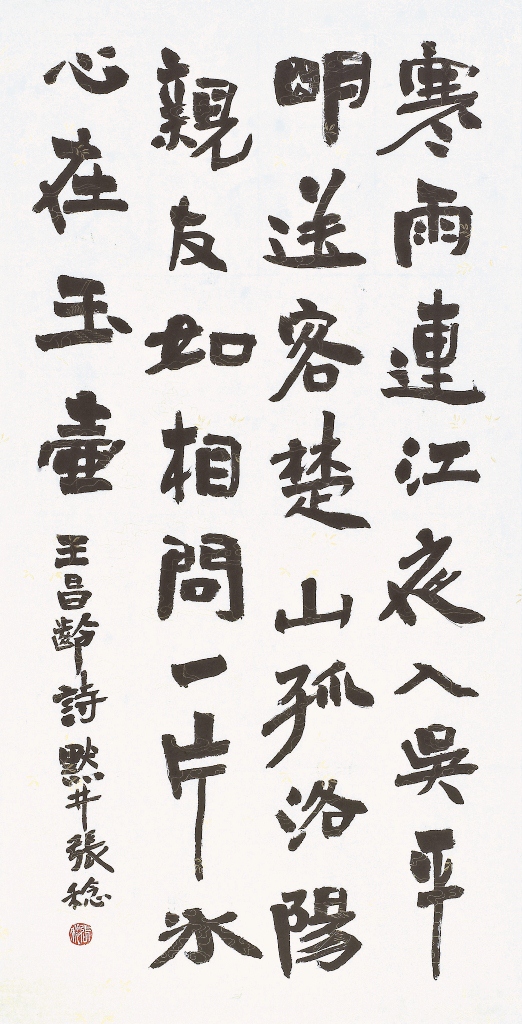 寒雨連江夜入吳平
明送客楚山孤洛陽
親友如相問一片冰
心在玉壺
王昌齡詩 默井張稔